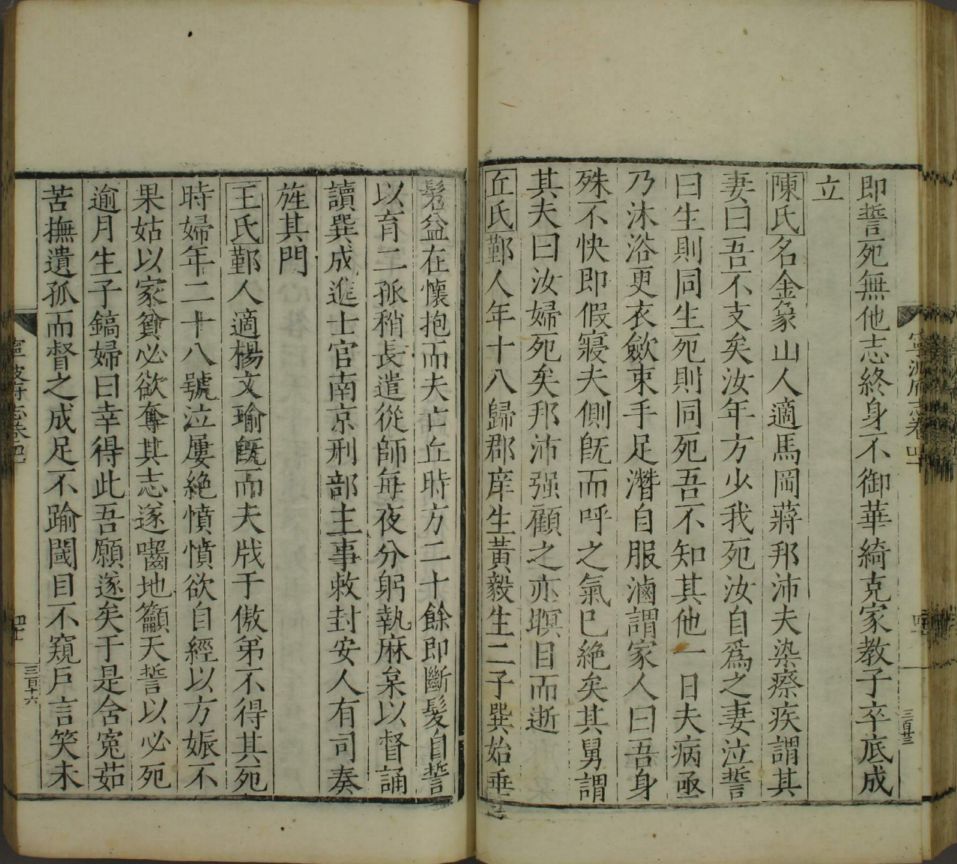 即誓死無他志終身不御華綺克家教子卒底成
立
陳氏名金象山人適馬岡蔣邦沛夫染瘵疾謂其
妻曰吾不支矣汝年方少我死汝自爲之妻泣誓
曰生則同生死則同死吾不知其他一日夫病亟
乃沐浴更衣斂束手足潛自服滷謂家人曰吾身
殊不快即假寢夫側旣而呼之氣巳絶矣其舅謂
其夫曰汝婦死矣邦沛强顧之亦瞑目而逝
丘氏鄞人年十八歸郡庠生黃毅生二子巽始垂
髫益在懷抱而夫亡丘時方二十餘即斷髮自誓
以育二孤稍長遣從師每夜分躬執麻枲以督誦
讀巽成進士官南京刑部主事敕封安人有司奏
旌其門
王氏鄞人適楊文瑜旣而夫戕于傲弟不得其死
時婦年二十八號泣屢絶憤憤欲自經以方娠不
果姑以家貧必欲奪其志遂囓地籲天誓以必死
逾月生子鎬婦曰幸得此吾願遂矣于是含寃茹
苦撫遺孤而督之成足不踰閾目不窺戶言笑未
寧波府志卷四十
三百廿三
寧波府志卷四十
三百十六